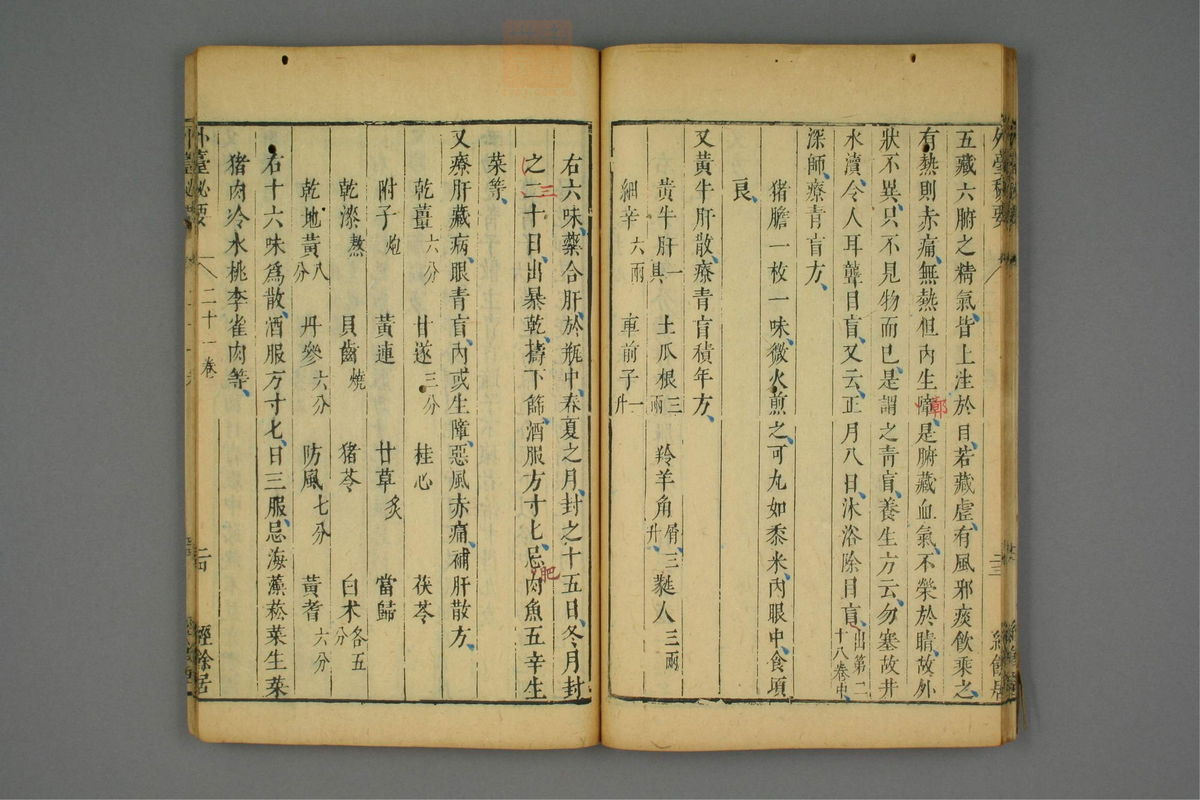 五藏六腑之精氣皆上注於目若藏虛有風邪痰飲乘之
有熱則赤痛無熱但內生障是腑藏血氣不榮於睛故外
鄣
狀不異只不見物而已是謂之青盲養生方云勿塞故井
水瀆令人耳聾目盲又云正月八日沐浴除目盲出第二十八卷中
深師療青盲方
猪膽一枚一味微火煎之可丸如黍米內眼中食頃
良
又黃牛肝散療青盲積年方
黃牛肝一具 土瓜根三兩 羚羊角屑三升 蕤人三兩
細辛六兩 車前子一升
右六味藥合肝於瓶中春夏之月封之十五日冬月封
之二十日出暴乾擣下篩酒服方寸七忌肉魚五辛生
三
肥
菜等
又療肝藏病眼青盲內或生障惡風赤痛補肝散方
乾薑六分 甘遂三分 桂心 茯苓
附子炮 黃連 甘草炙 當歸
乾漆熬 貝齒燒 猪苓 白术各五分
乾地黃八分 丹參六分 防風七分 黃耆六分
右十六味爲散酒服方寸七日三服忌海藻菘菜生菜
猪肉冷水桃李雀肉等
外臺秘要 二十一卷 二四 經餘居